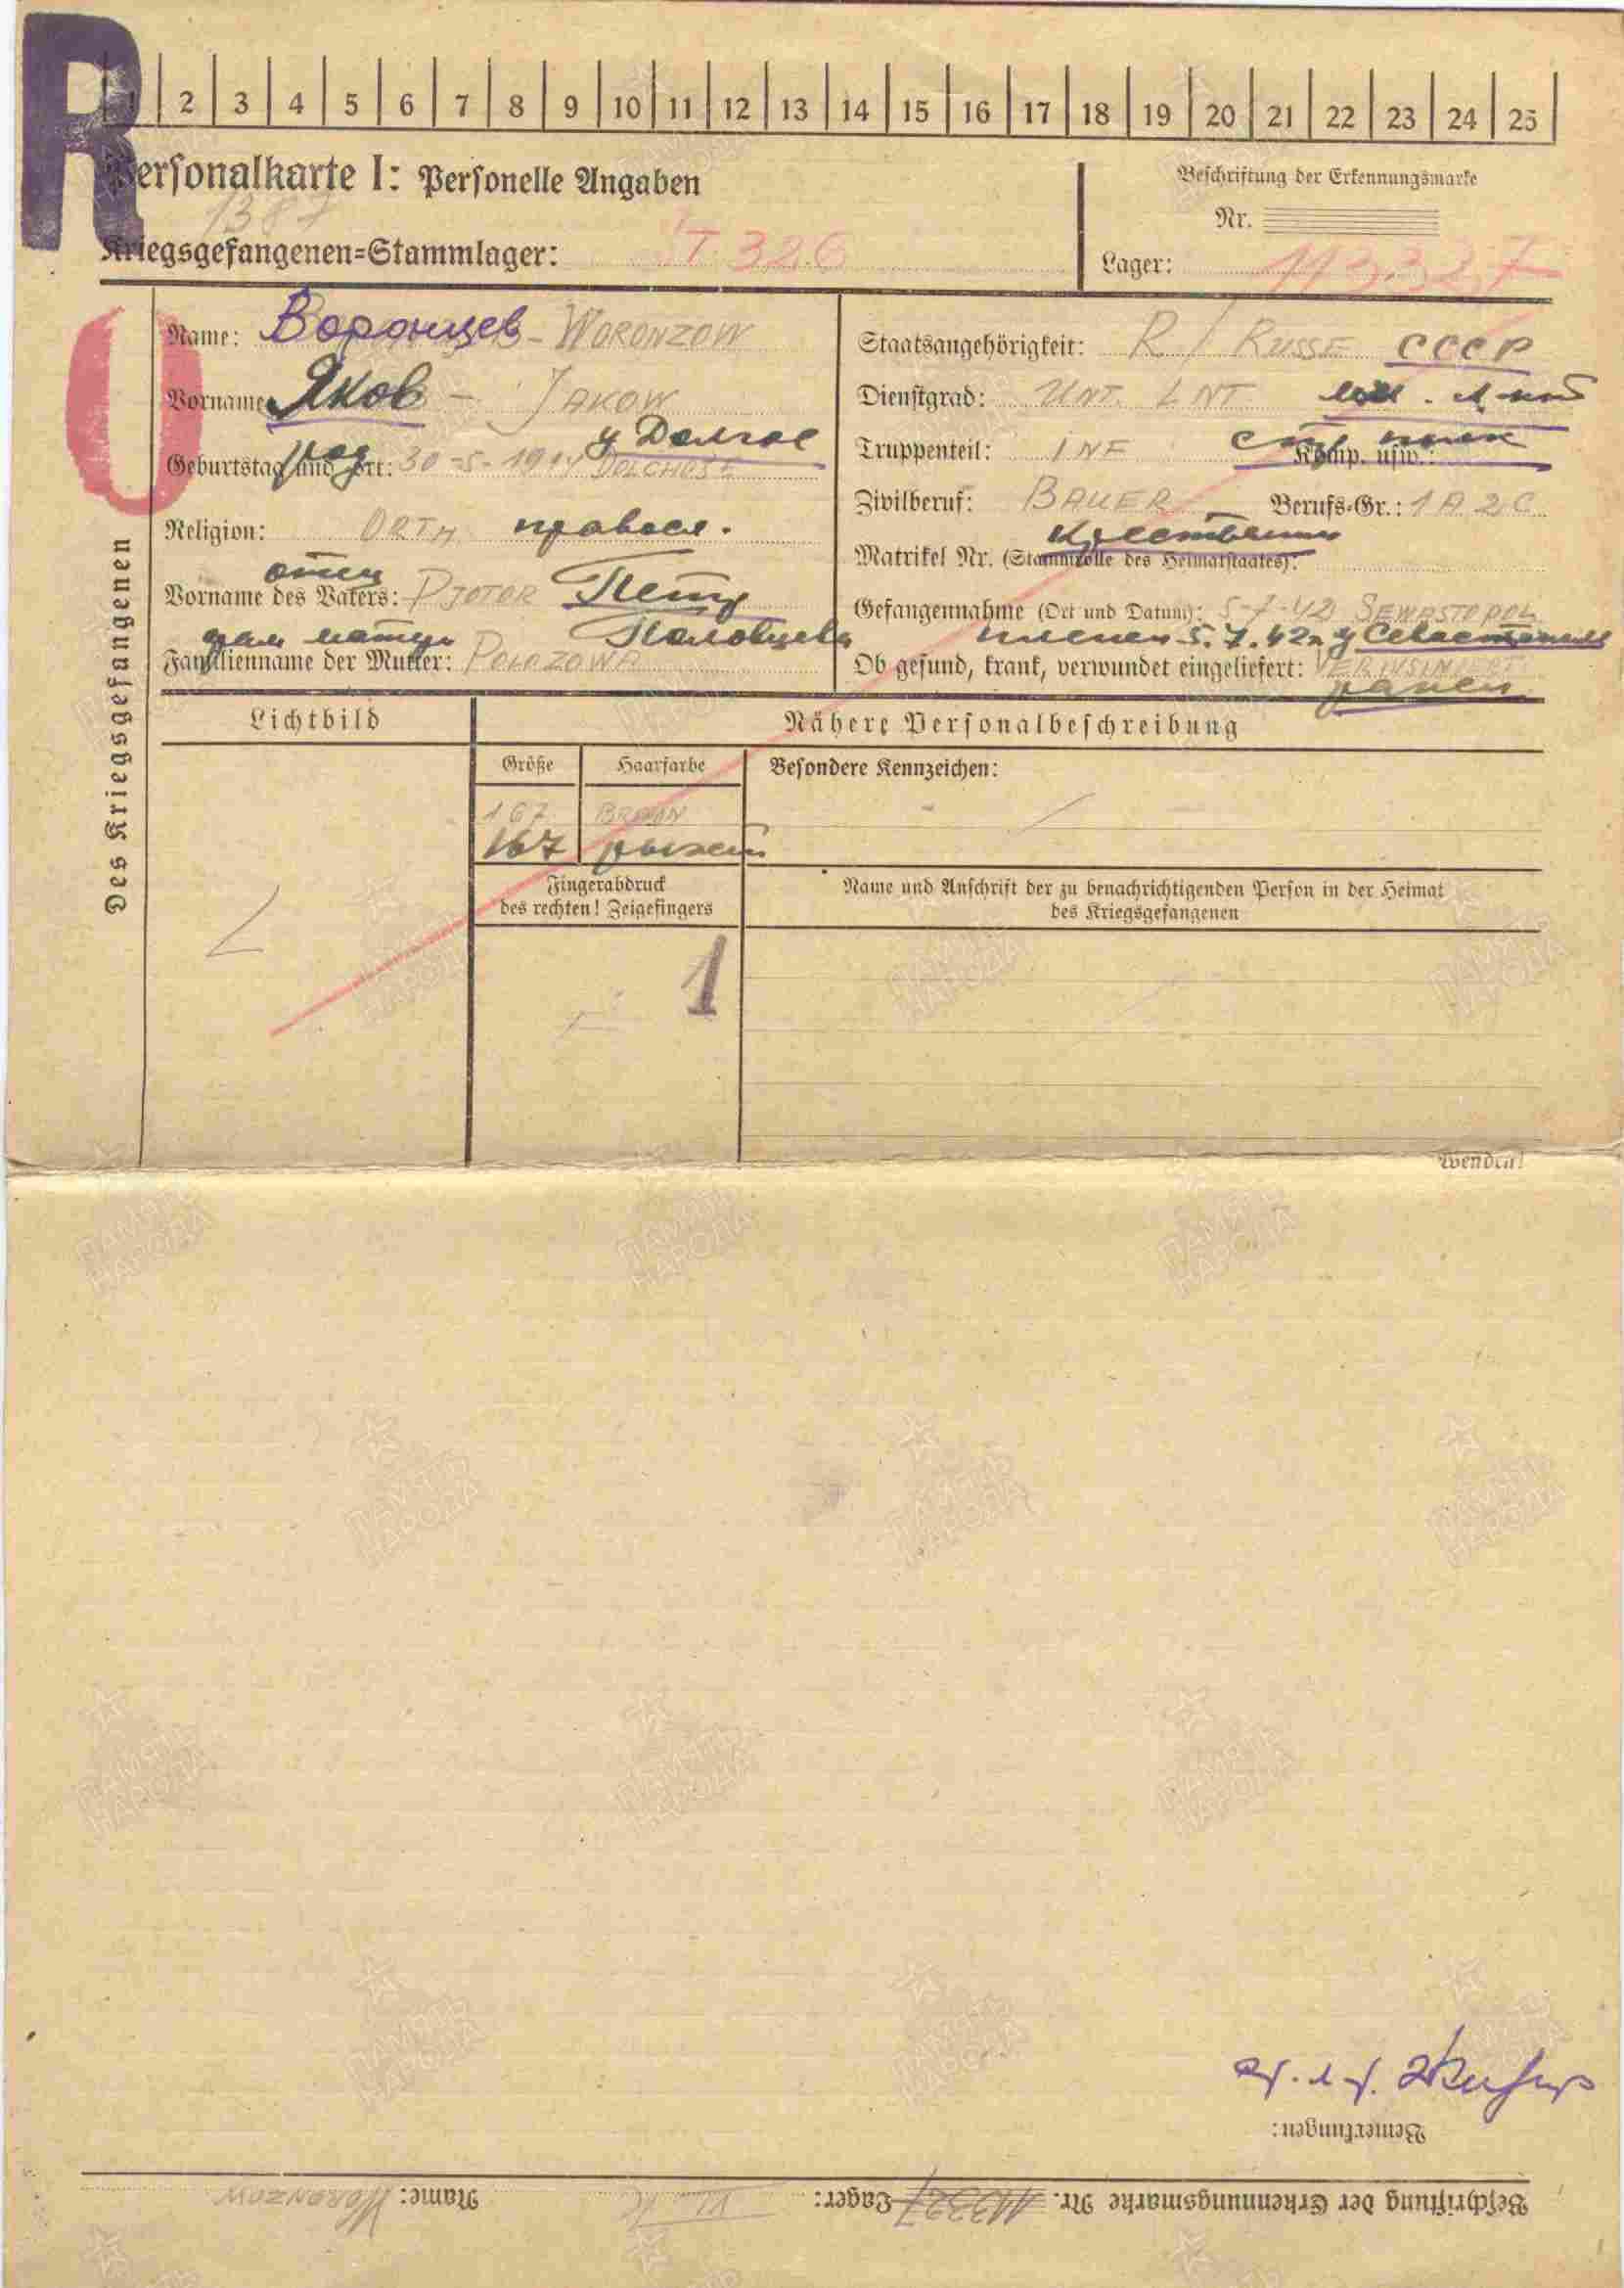 R
1 2 3 4 5 6 7 8 9 10 11 12 13 14 15 16 17 18 19 20 21 22 23 24 25
Personalkarte I: Personelle Angaben
Beschriftung der Erkennungsmarke
1387
Nr.
Kriegsgefangenen=Stammlager: ST. 326
Lager: 113327
Des Kriegsgefangenen
Name: Воронцев - WORONZOW
Vorname: Яков - JAKOW
у Долгое
Geburtstag und Ort: 30-5-1914 DOLCHOSE
род
Religion: ORTH. правосл.
отец
Vorname des Vaters: PJOTOR Петр
фам матери Половцева
Familienname der Mutter: POLOZOWA
Staatsangehörigkeit: R / RUSSE СССР
Dienstgrad: UNT. LNT мл. л-нт
Truppenteil: INF стр. полк Komp. usw.:
Zivilberuf: BAUER Berufs-Gr.: 1A 2C
Крестьянин
Matrikel Nr. (Stammrolle des Heimatstaates):
Gefangennahme (Ort und Datum): 5-7-42 SEWASTOPOL
пленен 5.7.42г у Севастополя
Ob gesund, krank, verwundet eingeliefert:
ранен
Lichtbild
Nähere Personalbeschreibung
Größe Haarfarbe Besondere Kennzeichen:
167 BRAUN
167 русый
Fingerabdruck
des rechten! Zeigefingers
Name und Anschrift der zu benachrichtigenden Person in der Heimat
des Kriegsgefangenen
1
Wenden!
Bemerkungen:
Beschriftung der Erkennungsmarke Nr. 113327 Lager: VI K Name: WORONZOW
ПАМЯТЬ
НАРОДА